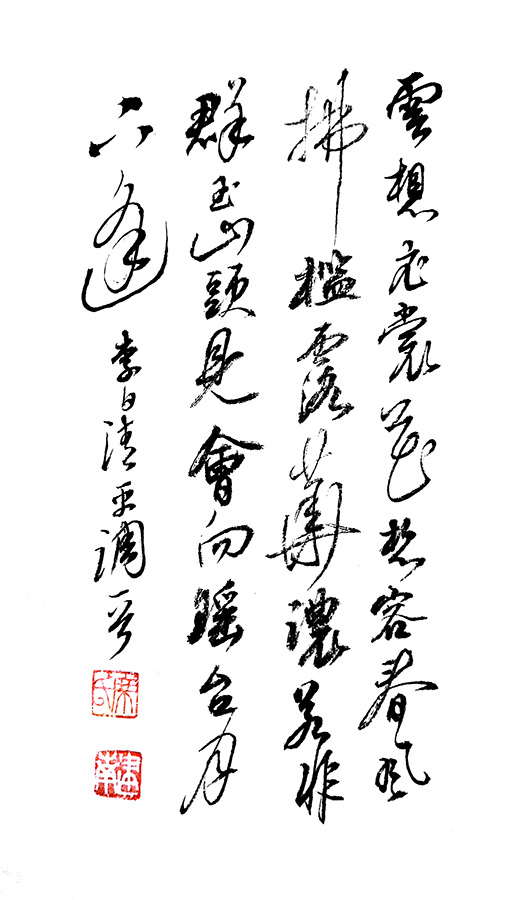 雲想衣裳花想容春風
拂檻露華濃若非
群玉山頭見會向瑤台月
下逢 李白清平調一首